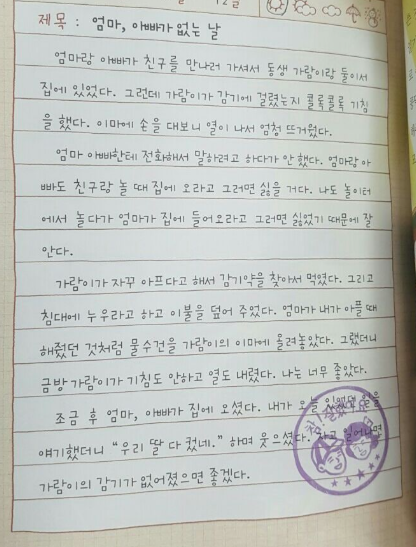 제목 : 엄마, 아빠가 없는 날
엄마랑 아빠가 친구를 만나러 가셔서 동생 가람이랑 둘이서
집에 있었다. 그런데 가람이가 감기에 걸렸는지 콜록콜록 기침
을 했다. 이마에 손을 대보니 열이 나서 엄청 뜨거웠다.
엄마 아빠한테 전화해서 말하려고 하다가 안 했다. 엄마랑 아
빠도 친구랑 놀 때 집에 오라고 그러면 싫을 거다. 나도 놀이터
에서 놀다가 엄마가 집에 들어오라고 그러면 싫었기 때문에 잘
안다.
가람이가 자꾸 아프다고 해서 감기약을 찾아서 먹였다. 그리고
침대에 누우라고 하고 이불을 덮어 주었다. 엄마가 내가 아플 때
해줬던 것처럼 물수건을 가람이의 이마에 올려놓았다. 그랬더니
금방 가람이가 기침도 안하고 열도 내렸다. 나는 너무 좋았다.
조금 후 엄마, 아빠가 집에 오셨다. 내가 오늘 있었던 일을
얘기했더니 “우리 딸 다 컸네.” 하며 웃으셨다. 자고 일어나면
가람이의 감기가 없어졌으면 좋겠다.